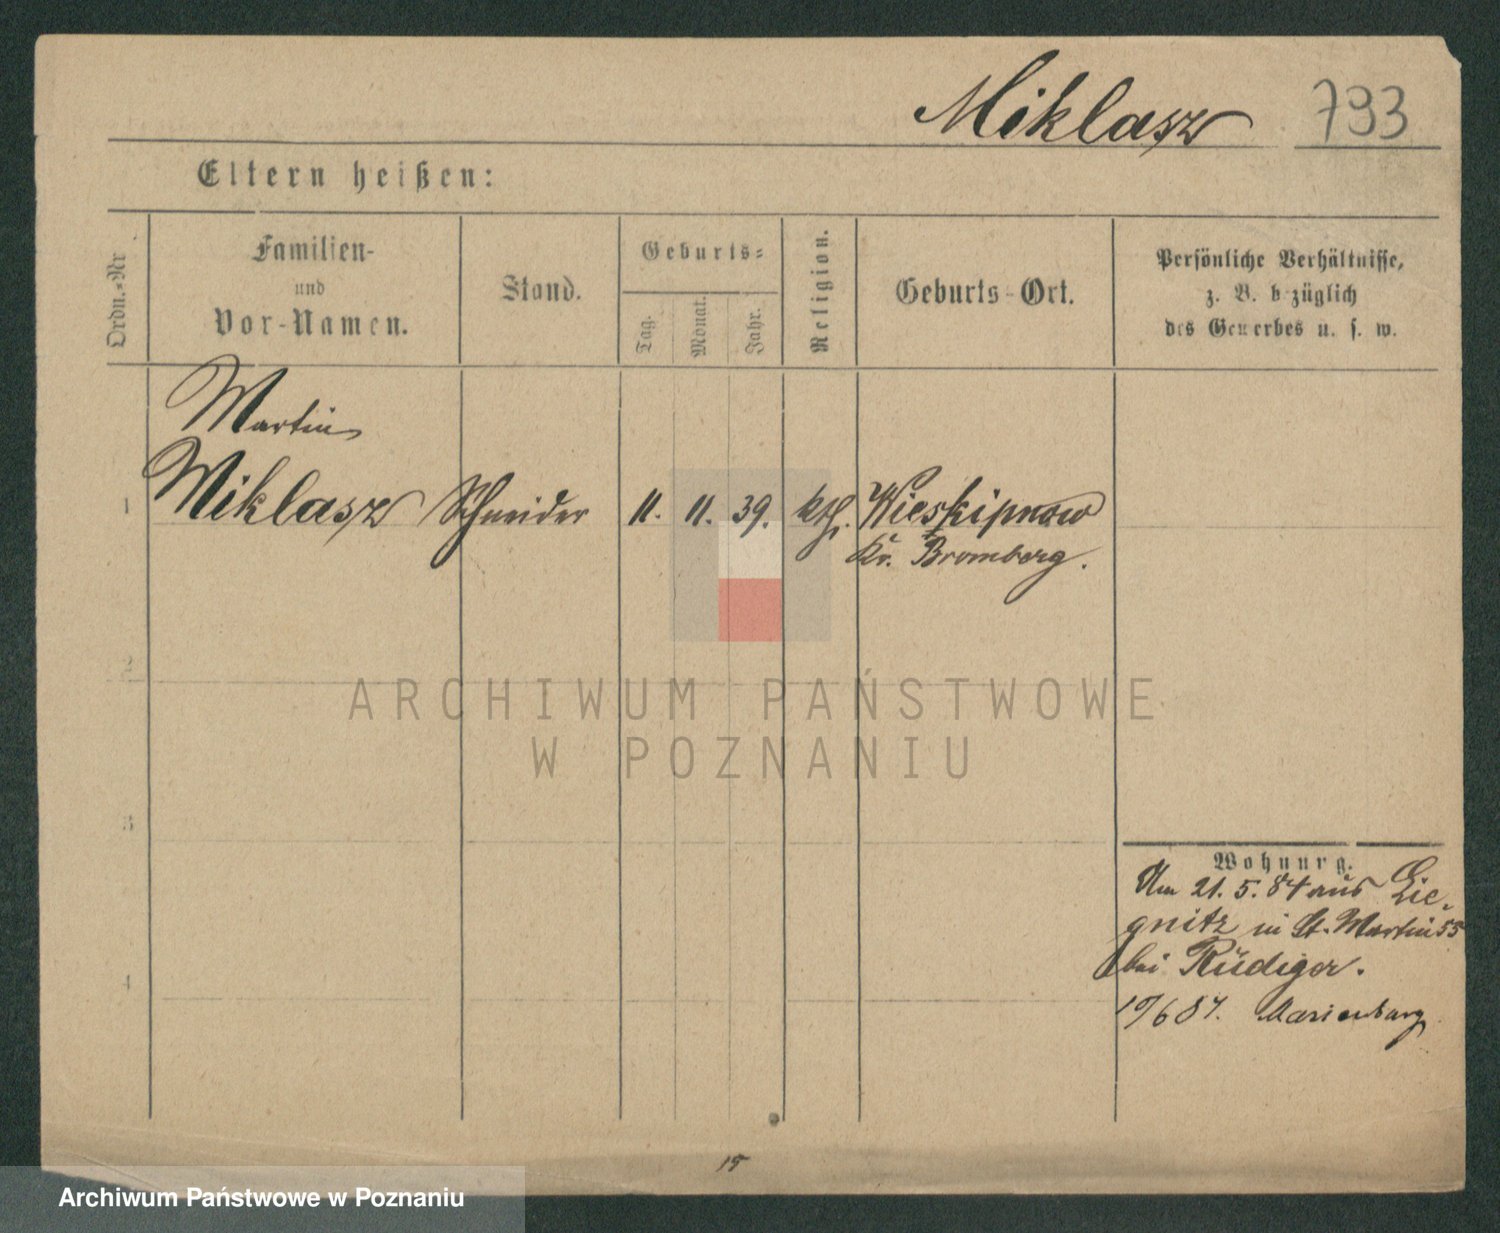 Miklasz 793
Eltern heißen:
Ordn.-Nr
Familien-
und
Vor-Namen.
Stand.
Geburts-
Tag.
Monat.
Jahr.
Religion.
Geburts-Ort.
Persönliche Verhältnisse,
z. B. bezüglich
des Gewerbes u. s. w.
Martin
1 Miklasz Schneider 11. 11. 39. kth. Wieskipnow
Kr. Bromberg.
2
3
4
Wohnung.
Am 21. 5. 84 aus Lie-
gnitz in St. Martin 55
bei Rüdiger.
84. Marienburg
15
ARCHIWUM PAŃSTWOWE
W POZNANIU
Archiwum Państwowe w Poznaniu